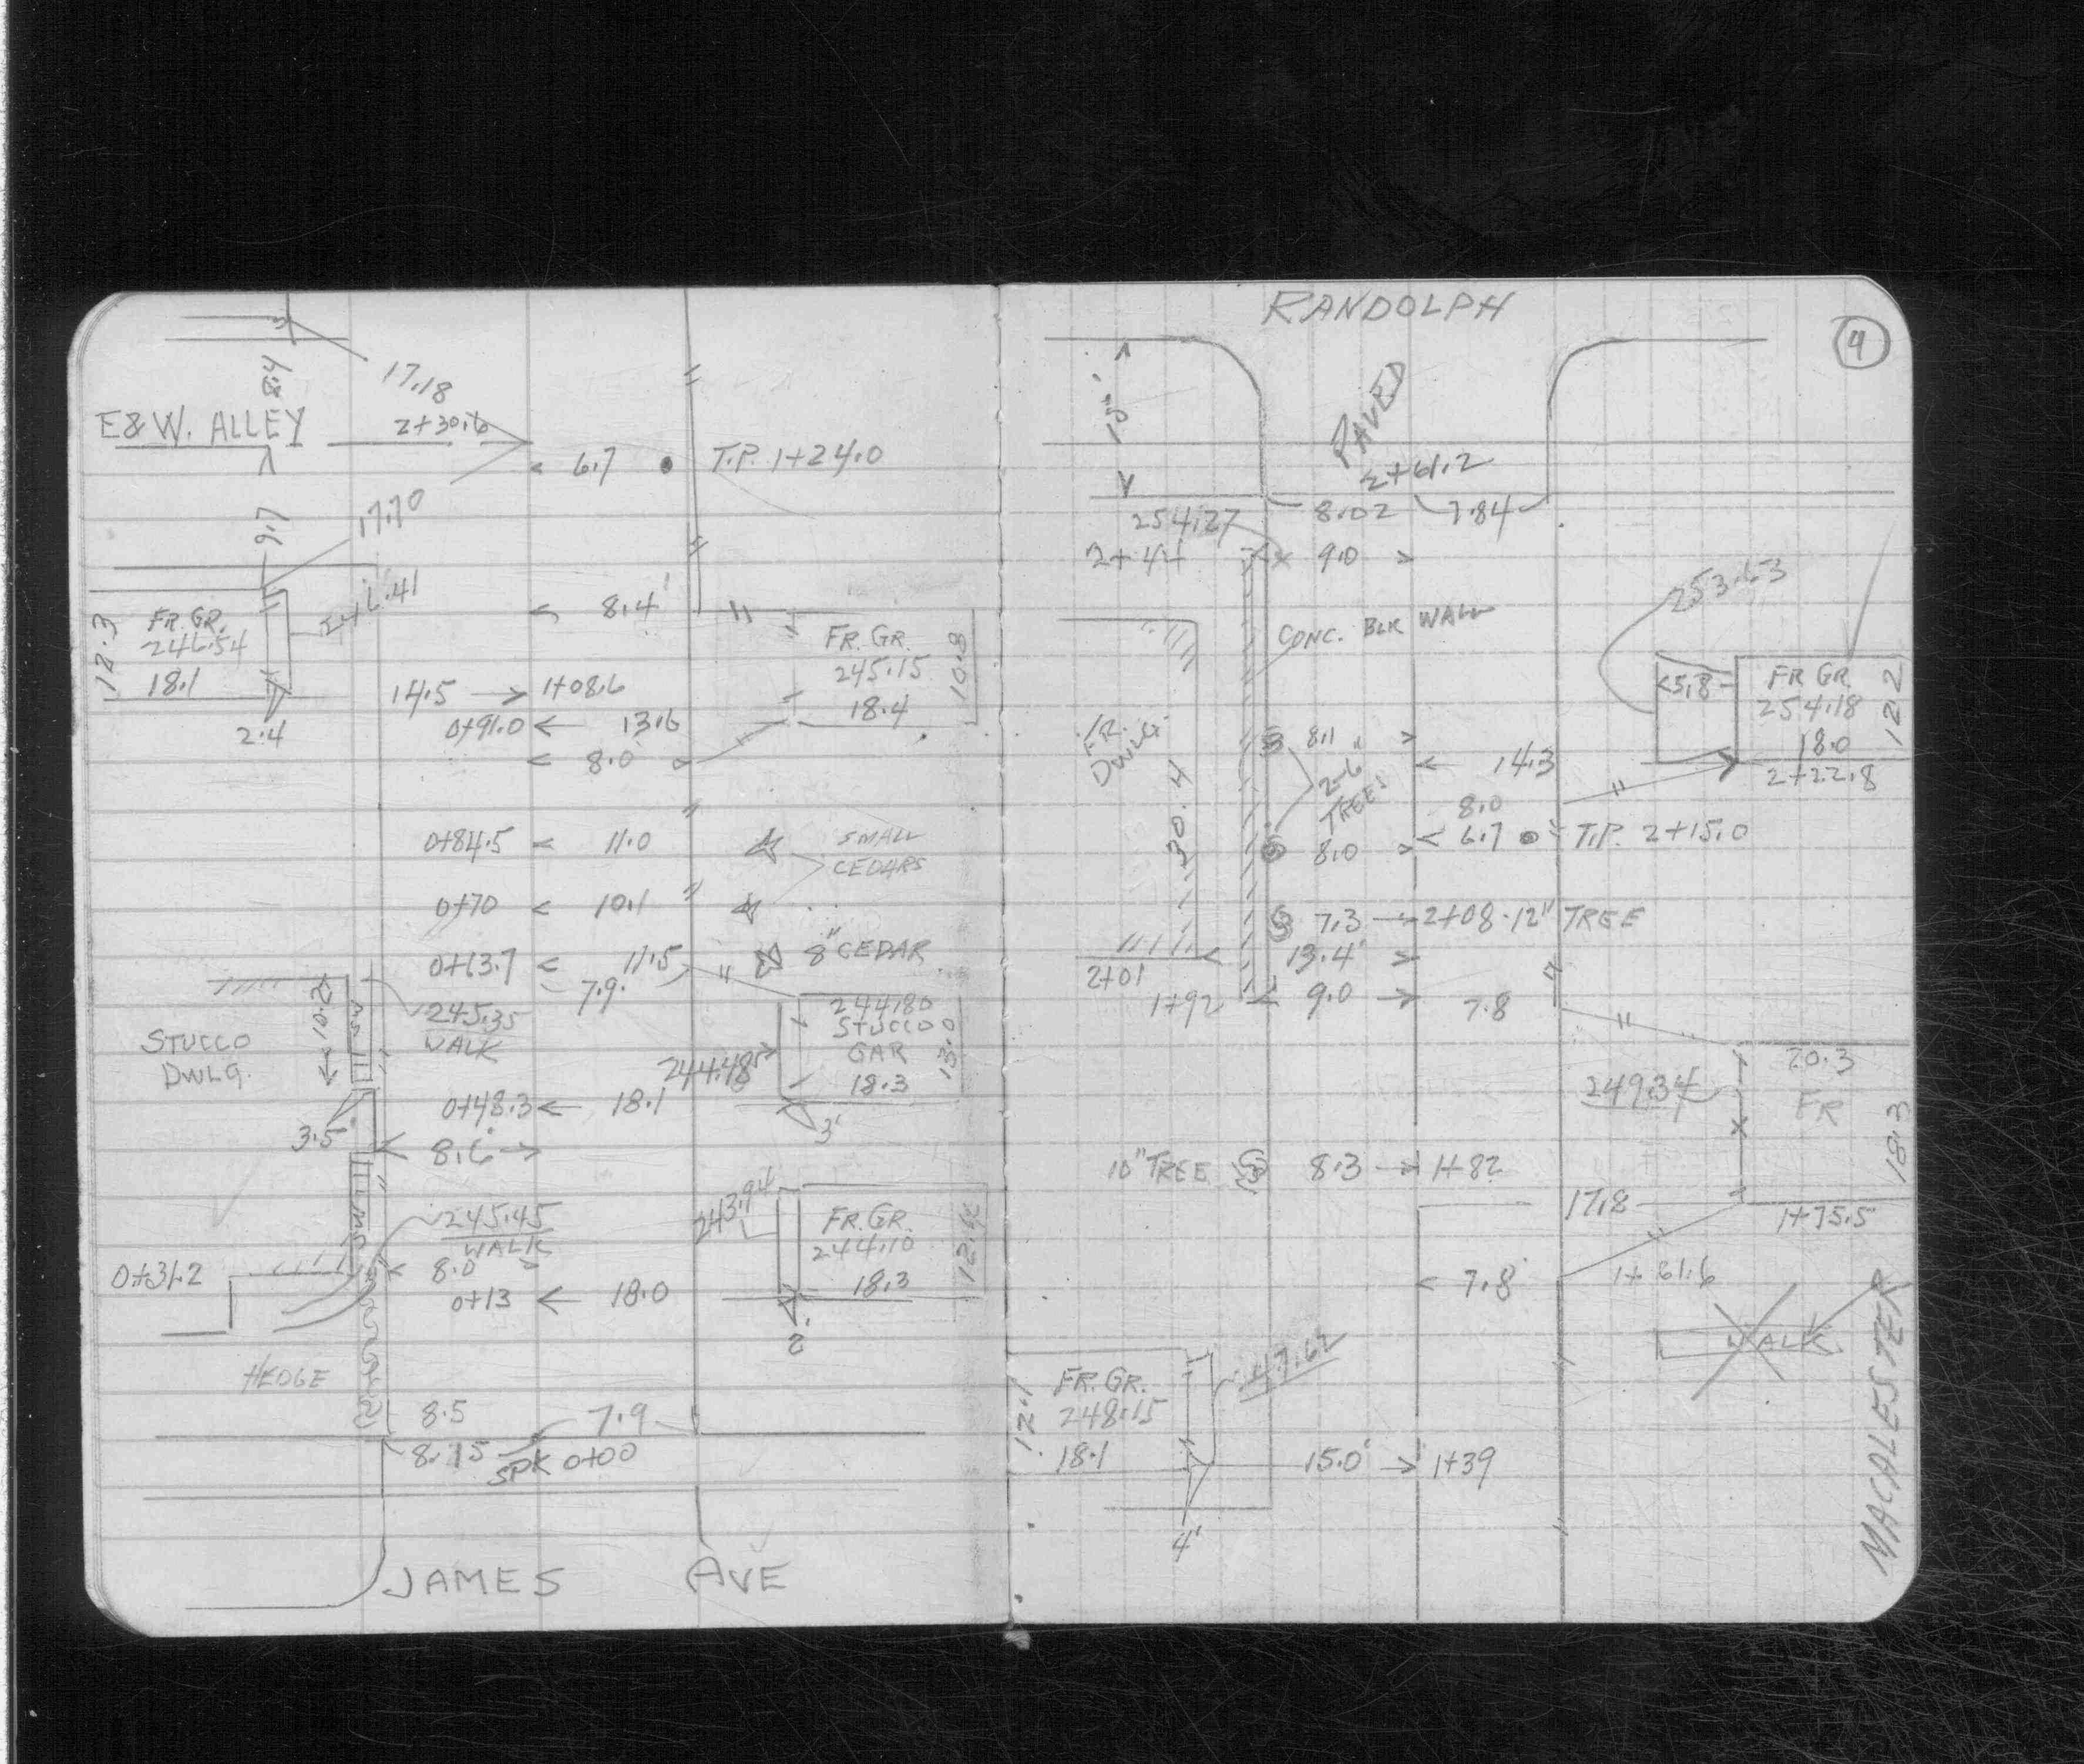 17.18
8.4
E&W. ALLEY
2+30.6
6.7
T.P. 1+24.0
9.7
17.70
8.4'
FR. GR.
246.54
18.1
2.4
FR. GR.
245.15
18.4
10.8
14.5 → 1+08.6
0+91.0 ← 13.6
< 8.0
0+84.5 < 11.0
SMALL
CEDARS
0+70 < 10.1
0+63.7 < 11.5
8" CEDAR
7.9
10.2
245.35
WALK
STUCCO
DWLG.
244.80
STUCCO
GAR
18.3
13.0
244.48
0+48.3 ← 18.1
3'
3.5
8.6 →
245.45
WALK
243.94
FR. GR.
244.10
18.3
12.4
0+31.2
8.0 >
0+13 ← 18.0
2'
HEDGE
8.5
7.9
8.15
SPK 0+00
JAMES AVE
RANDOLPH
PAVED
2+61.2
254.27
8.02
7.84
2+44
9.0 >
CONC. BLK WALL
253.63
<5.8
FR GR.
254.18
18.0
12.2
2+22.8
FR.
DWLG.
30.4
8.1 >
2-6"
TREES
< 14.3
8.0
8.0 >
< 6.7
T.P. 2+15.0
7.3 → 2+08-12" TREE
13.4' >
2+01
1+92
9.0 →
7.8
20.3
FR
18.3
249.34
10" TREE
8.3 → 1+82
17.8
1+75.5
< 7.8
1+61.6
WALK
FR. GR.
248.15
18.1
12.1
15.0' → 1+39
4'
MACALESTER